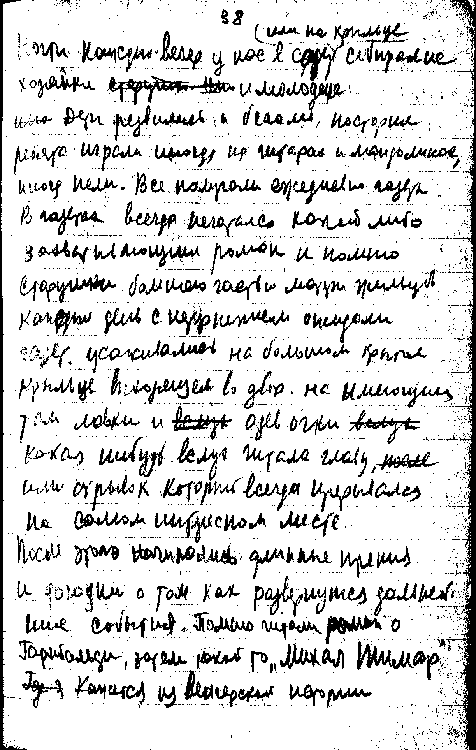 38
(или на крыльце
Почти каждый вечер у нас в саду собирались
хозяйки и молодеж
Дети резвились и бегали, постарше
ребята играли иногда на гитарах и мандолинах,
иногда пели. Все получали ежедневно газеты
В газетах всегда печатался какой либо
захватывающий роман и помню
старушки большею частью матери жильцов
каждый день с нетерпением ожидали
газет. усаживались на большом крытом
крыльце выходящем во двор. на имеющиеся
там лавки и одев очки
какая нибудь вслух читала главу,
или отрывок который всегда прерывался
на самом интересном месте.
После этого начинались длинные прения
и догадки о том как развернутся дальней-
шие события. Помню читали роман о
Гарибальди, затем какой то „Михал
кажется из Венгерской истории